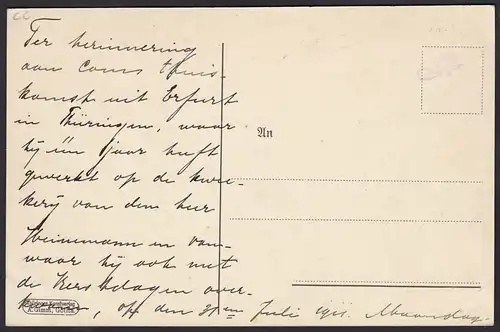 Ter herinnering
aan Coms thuis-
komst uit Erfurt
in Thüringen, waar
hij één jaar heeft
gewerkt op de kwee-
kerij van den heer
Heinemann en van-
waar hij ook met
de Kerstdagen over-
, op den 31en Juli 1911. Maandag.
An